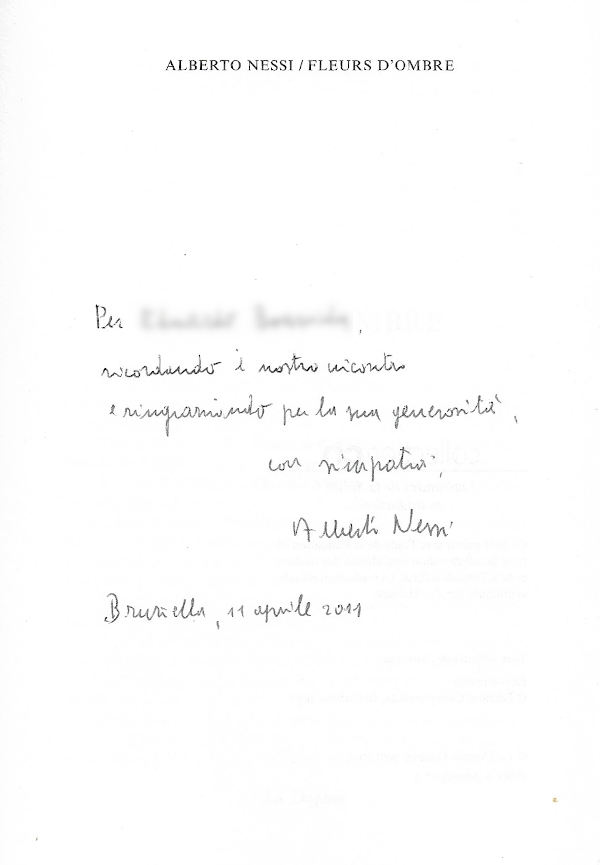 ALBERTO NESSI / FLEURS D'OMBRE
Per
ricordando il nostro incontro
e ringraziando per la sua generosità,
con simpatia,
Alberto Nessi
Bruxelles, 11 aprile 2011